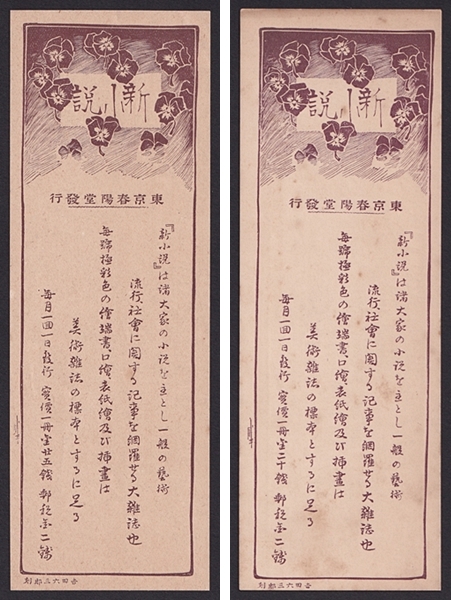 新小説
東京春陽堂發行
『新小説』は諸大家の小説を主とし一般の藝術
流行、社會に関する記事を網羅せる大雜誌也
毎號極彩色の繪端書口繪表紙繪及び挿畫は
美術雜誌の標本とするに足る
毎月一回一日發行 實價一冊金廿五錢 郵税金二錢
吉田六三郎刻
新小説
東京春陽堂發行
『新小説』は諸大家の小説を主とし一般の藝術
流行、社會に関する記事を網羅せる大雜誌也
毎號極彩色の繪端書口繪表紙繪及び挿畫は
美術雜誌の標本とするに足る
毎月一回一日發行 實價一冊金二十錢 郵税金二錢
吉田六三郎刻